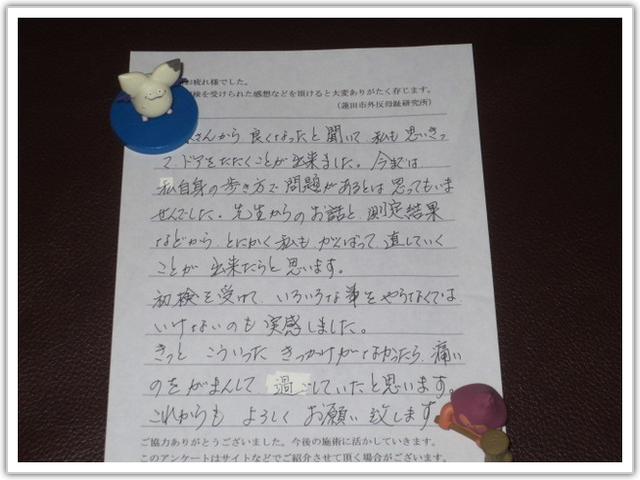 お疲れ様でした。
検を受けられた感想などを頂けると大変ありがたく存じます。
(蓮田市外反母趾研究所)
さんから 良くなったと聞いて 私も思いきっ
て ドアをたたくことが出来ました。今までは
私自身の歩き方で問題があるとは思ってもいま
せんでした。先生からのお話と、測定結果
などから、とにかく私も、がんばって直していく
ことが 出来たらと思います。
初検を受けて、いろいろな事をやらなくては
いけないのも実感しました。
きっと こういった きっかけがなかったら、痛い
のをがまんして 過ごしていたと思います。
これからも よろしく お願い致します
ご協力ありがとうございました。今後の施術に活かしていきます。
このアンケートはサイトなどでご紹介させて頂く場合がございます。